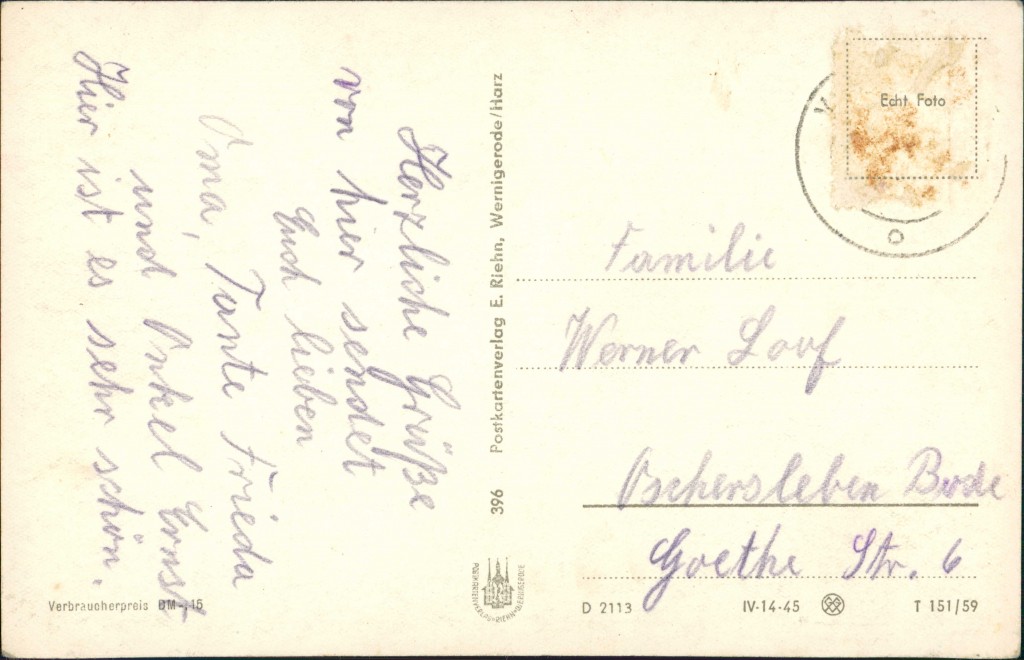 Herzliche Grüße
von hier sendet
Euch lieben
Oma, Tante Frieda
und Onkel Ernst
Hier ist es sehr schön.
Verbraucherpreis DM -,15
396 Postkartenverlag E. Riehn, Wernigerode/Harz
Echt Foto
Familie
Werner Loof
Oschersleben Bode
Goethe Str. 6
D 2113 IV-14-45 T 151/59